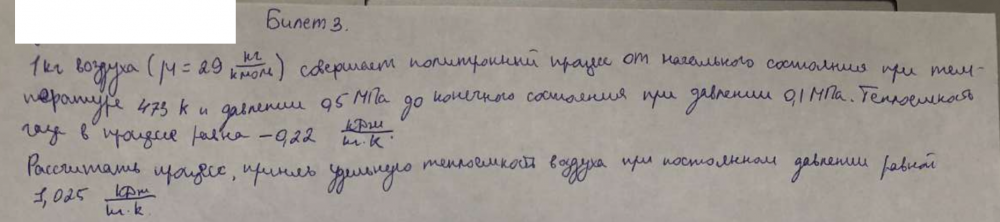 Билет 3.
1 кг воздуха (μ = 29 кг/кмоль) совершает политропный процесс от начального состояния при тем-
пературе 473 К и давлении 0,5 МПа до конечного состояния при давлении 0,1 МПа. Теплоемкость
газа в процессе равна -0,22 кДж/кг·К.
Рассчитать процесс, приняв удельную теплоемкость воздуха при постоянном давлении равной
1,025 кДж/кг·К.